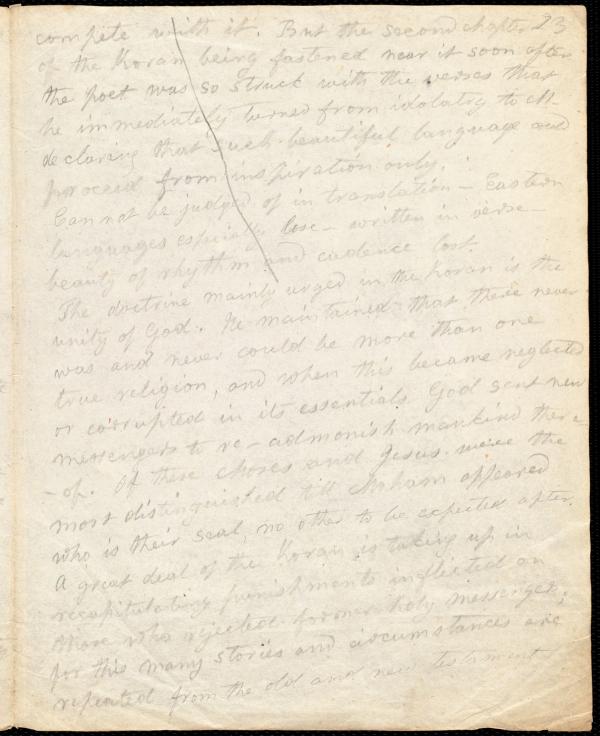 compete with it. But the second chapter 23
of the Koran being fastened near it soon after
the poet was so struck with the verses that
he immediately turned from idolatry to M-
declaring that such beautiful language could
proceed from inspiration only.
Can not be judged of in translation – Eastern
languages especially lose – written in verse –
beauty of rhythm and cadence lost.
The doctrine mainly urged in the Koran is the
unity of God. He maintained that there never
was and never could be more than one
true religion, and when this became neglected
or corrupted in its essentials God sent new
messengers to re-admonish mankind there-
-of. Of these Moses and Jesus were the
most distinguished till Moham appeared
who is their seal, no other to be expected after.
A great deal of the Koran is taking up in
recapitulating punishments inflicted on
those who rejected former holy messengers,
for this many stories and circumstances are
repeated from the old and new testament